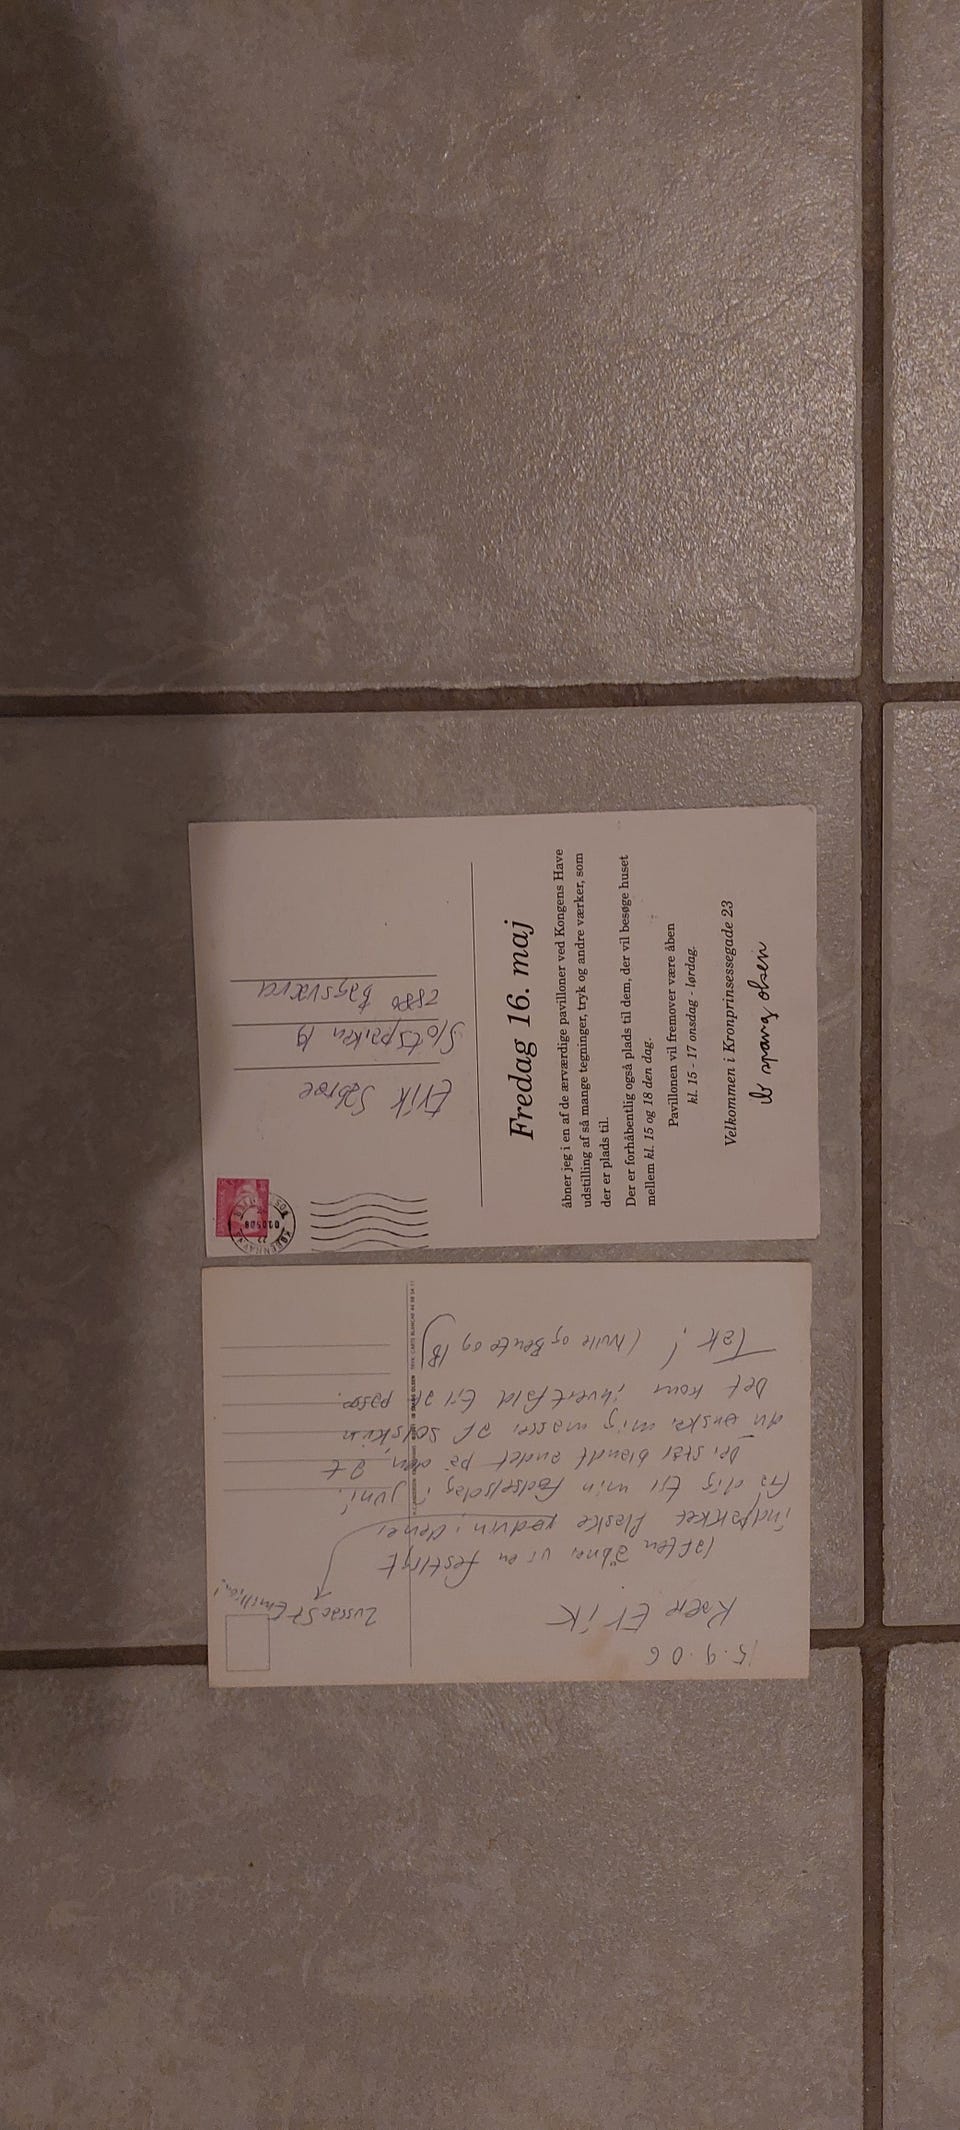 Erik Sabroe
Slotsparken 19
2880 Bagsværd
KØBENHAVNS
Fredag 16. maj
åbner jeg i en af de ærværdige pavilloner ved Kongens Have
udstilling af så mange tegninger, tryk og andre værker, som
der er plads til.
Der er forhåbentlig også plads til dem, der vil besøge huset
mellem kl. 15 og 18 den dag.
Pavillonen vil fremover være åben
kl. 15 - 17 onsdag - lørdag.
Velkommen i Kronprinsessegade 23
ib spang olsen
15.9.06
Kære Erik
Iaften åbner vi en festligt
indpakket flaske rødvin, den er
fra dig til min fødselsdag i juni.
Der står blandt andet på den, at
du ønsker mig masser af solskin
Det kom ihvertfald til at passe.
Tak! (Nulle og Bente og IB)
Lussac St Emillion!